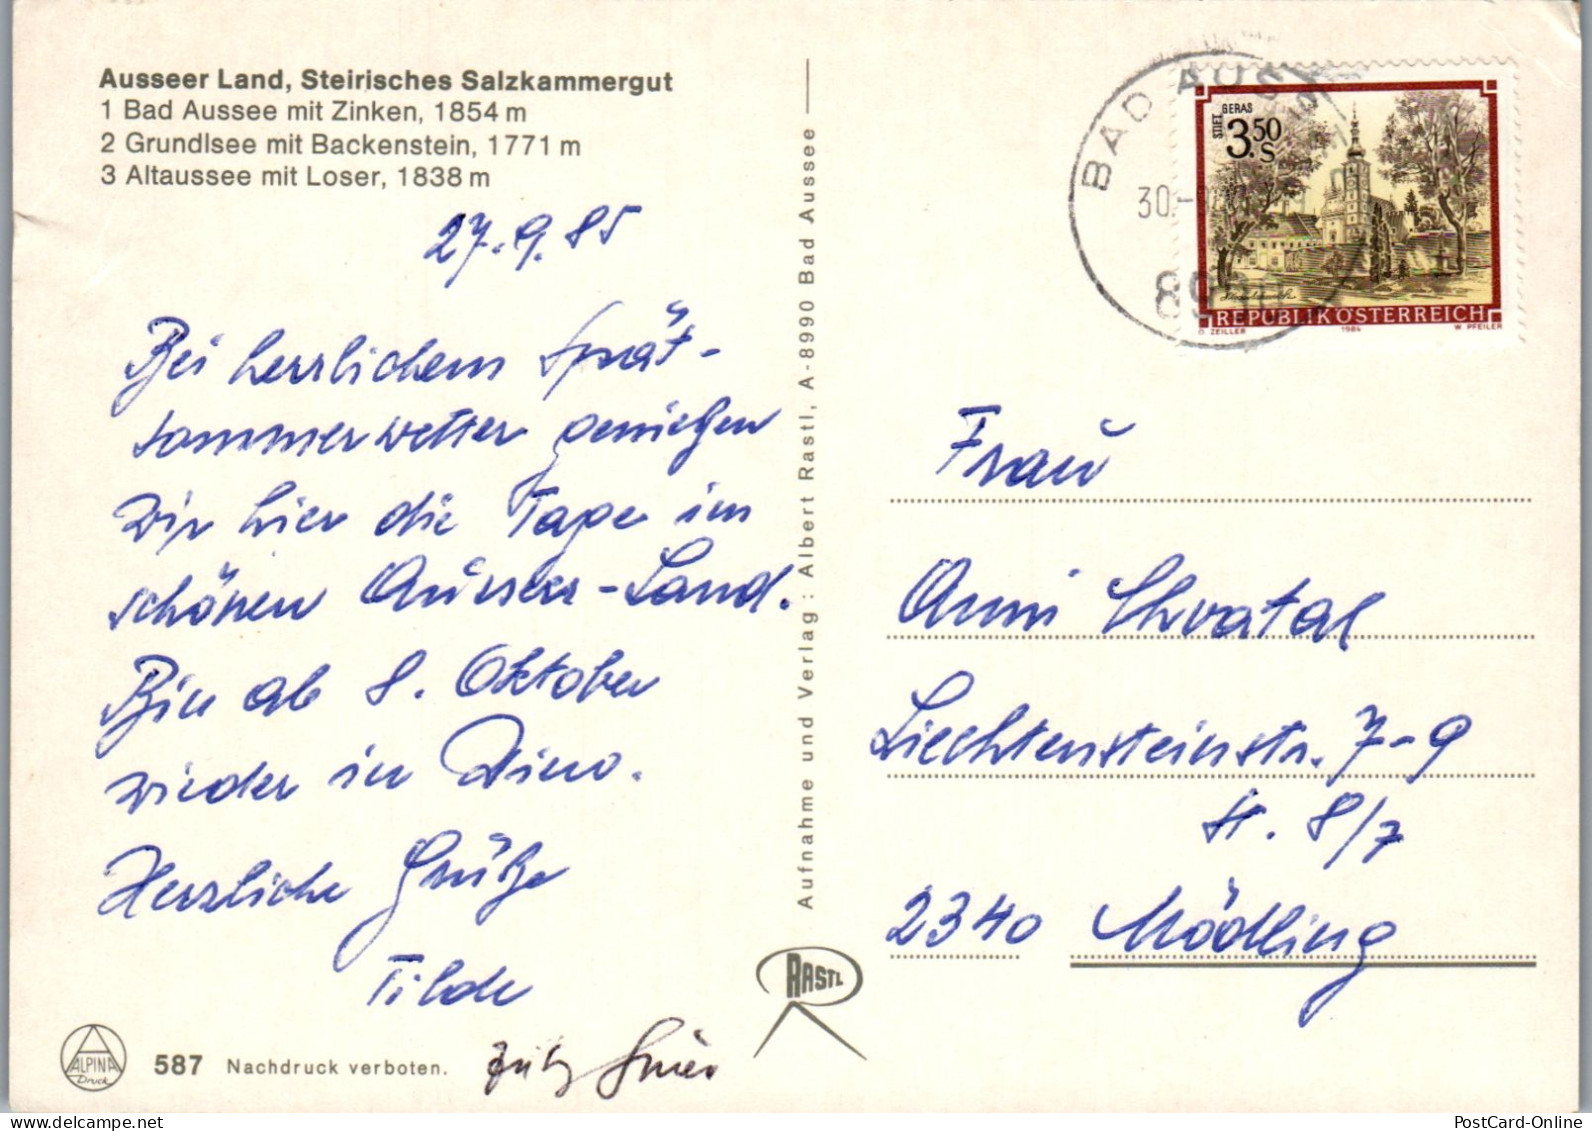 Ausseer Land, Steirisches Salzkammergut
1 Bad Aussee mit Zinken, 1854 m
2 Grundlsee mit Backenstein, 1771 m
3 Altaussee mit Loser, 1838 m
27.9.85
Bei herrlichem Spät-
sommerwetter genießen
wir hier die Tage im
schönen Ausseer-Land.
Bin ab 8. Oktober
wieder in
Herzliche Grüße
Tilde
587 Nachdruck verboten.
ALPINA
Druck
Aufnahme und Verlag: Albert Rastl, A-8990 Bad Aussee
RASTL
BAD AUS
30-
8990
STIFT GERAS
3.50
S
REPUBLIK ÖSTERREICH
O. ZEILLER 1984 W. PFEILER
Frau
Anni Chvatal
Liechtensteinstr. 7-9
St. 8/7
2340 Mödling
PostCard-Online